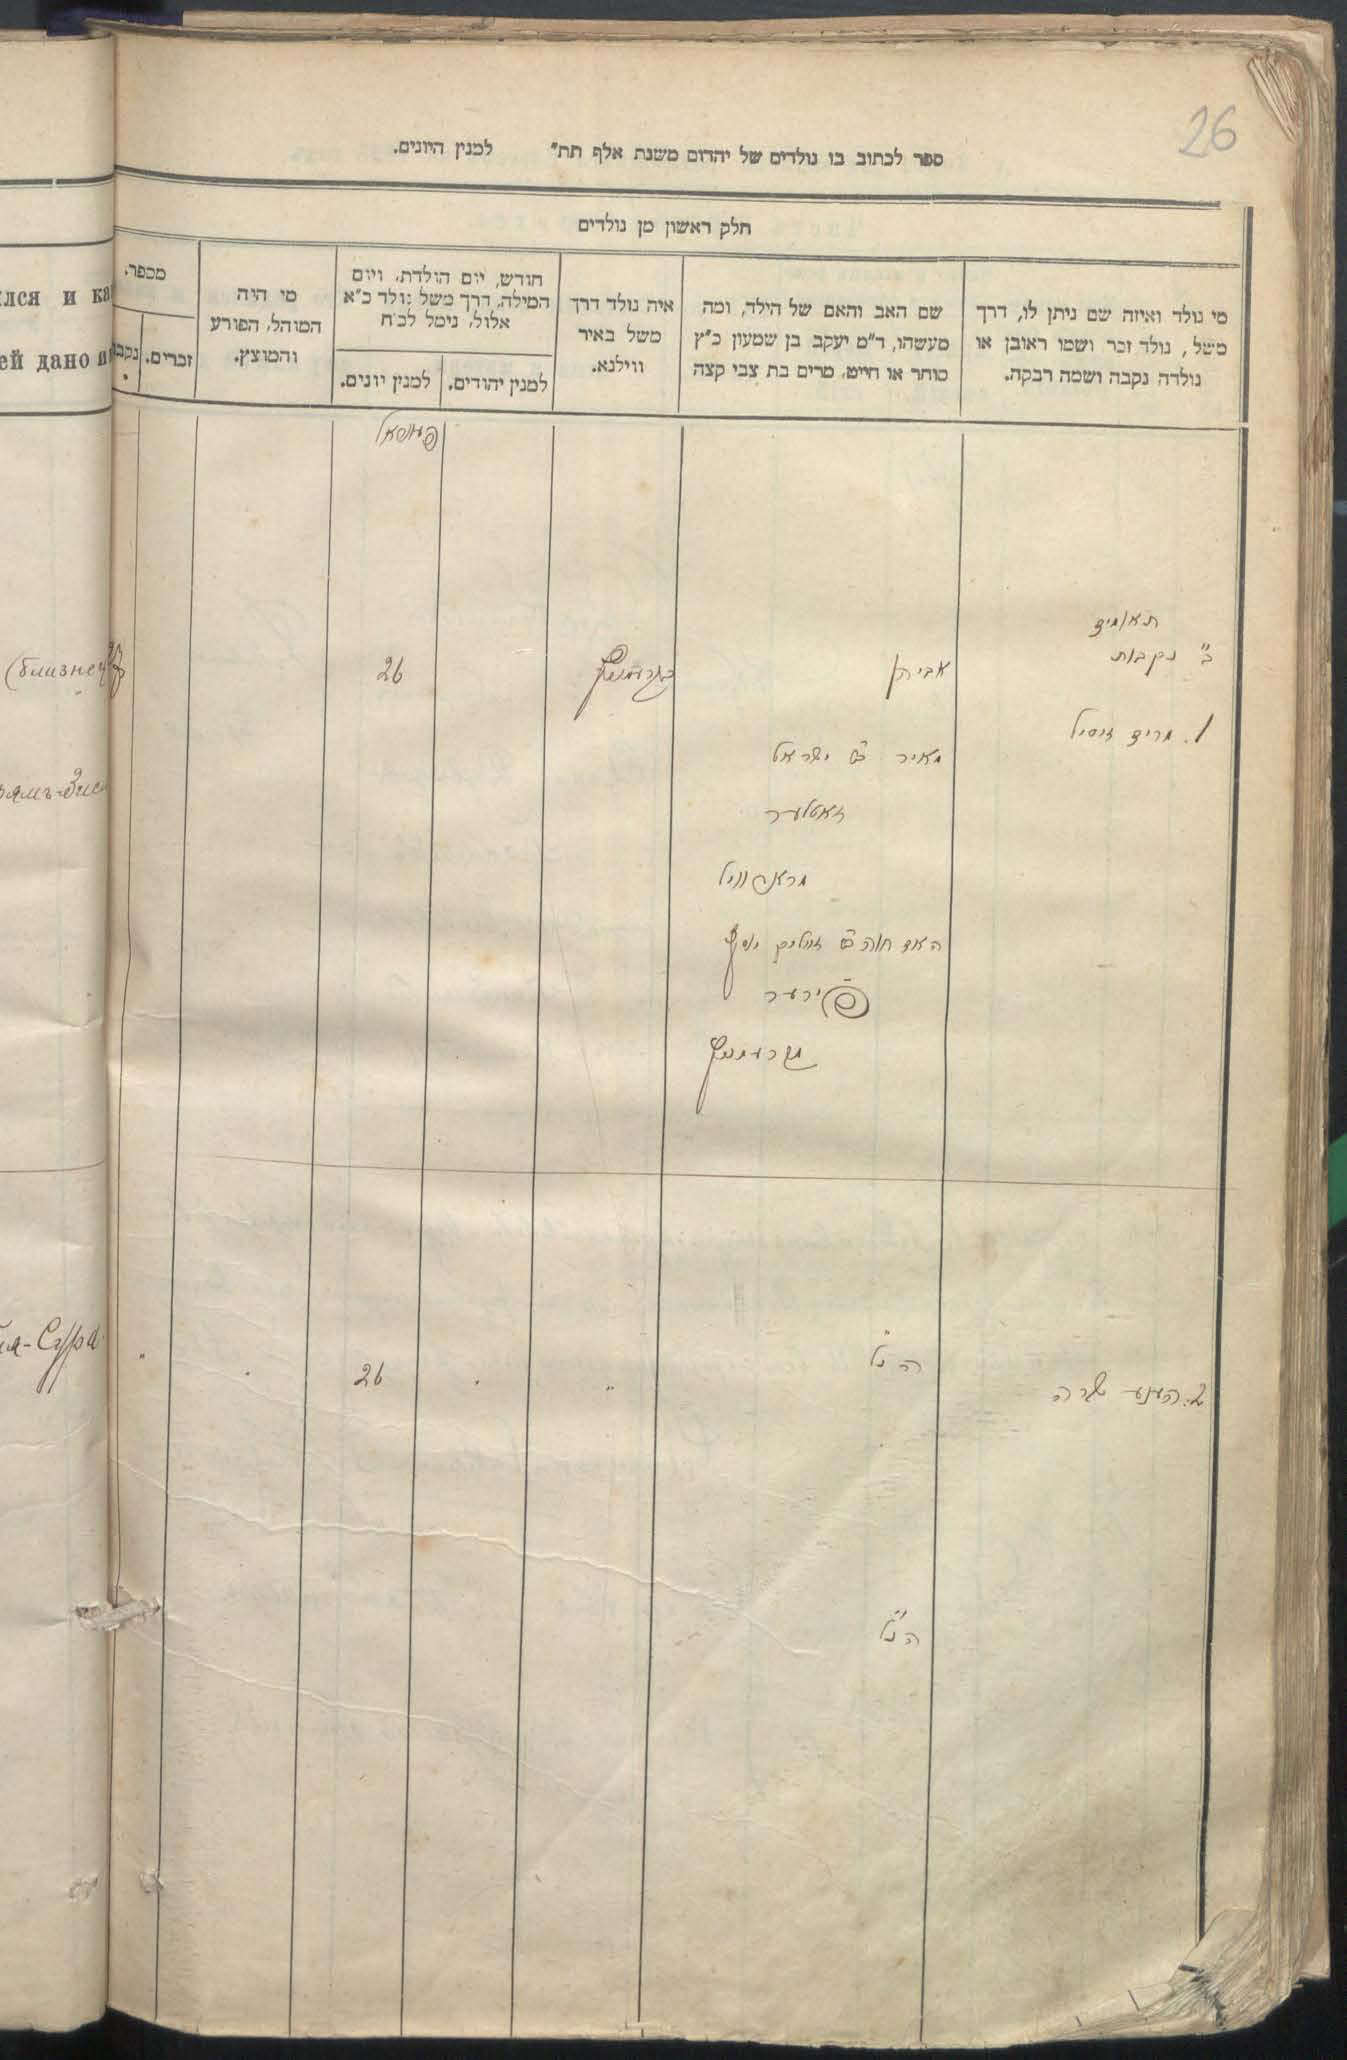 26
ספר לכתוב בו נולדים של יהדום משנת אלף תת״ למנין היונים.
חלק ראשון מן נולדים
מי נולד ואיזה שם ניתן לו, דרך
משל, נולד זכר ושמו ראובן או
נולדה נקבה ושמה רבקה.
שם האב והאם של הילד, ומה
מעשהו, ד״מ יעקב בן שמעון כ״ץ
סוחר או חייט, מרים בת צבי קצה
איה נולד דרך
משל באיר
ווילנא.
חודש, יום הולדת, ויום
המילה, דרך משל נולד כ״א
אלול, נימל לכ״ח
למנין יהודים.
למנין יונים.
מי היה
המוהל, הפורע
והמוצץ.
מכפר.
זכרים.
נקבו
лся и ка
ей дано и
תאומים
ב״ נקבות
אביהן
26
(близнец
1. מרים זיסיל
מאיר ב״ר ישראל
זאטלער
האם חוה ב״ר
ירער
2. הענע שרה
הנ״ל
26
я-Сура
הנ״ל